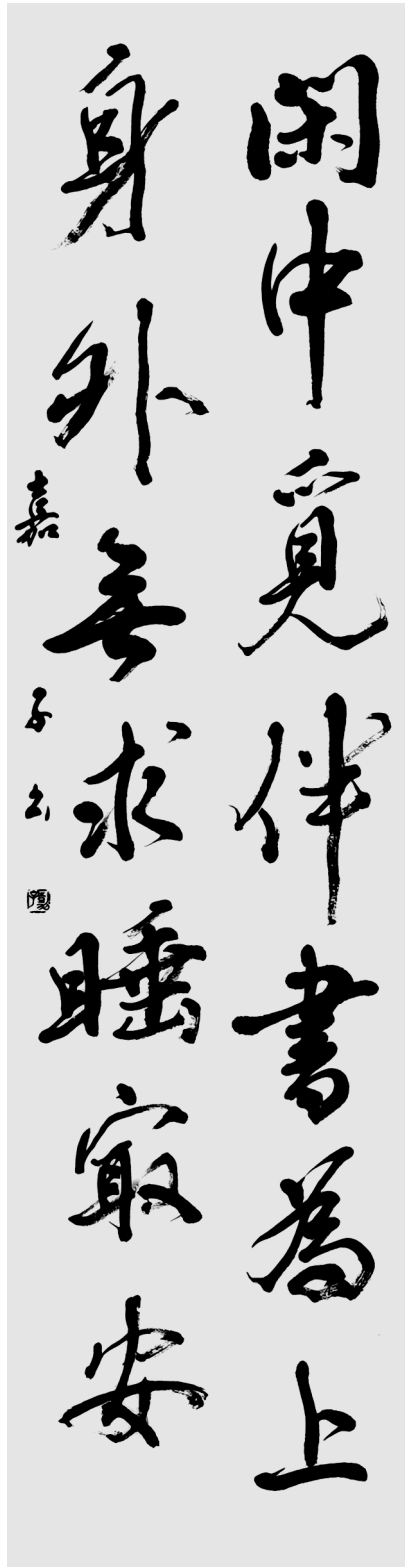 閑中覓伴書為上
身外無求睡寂安
嘉子书